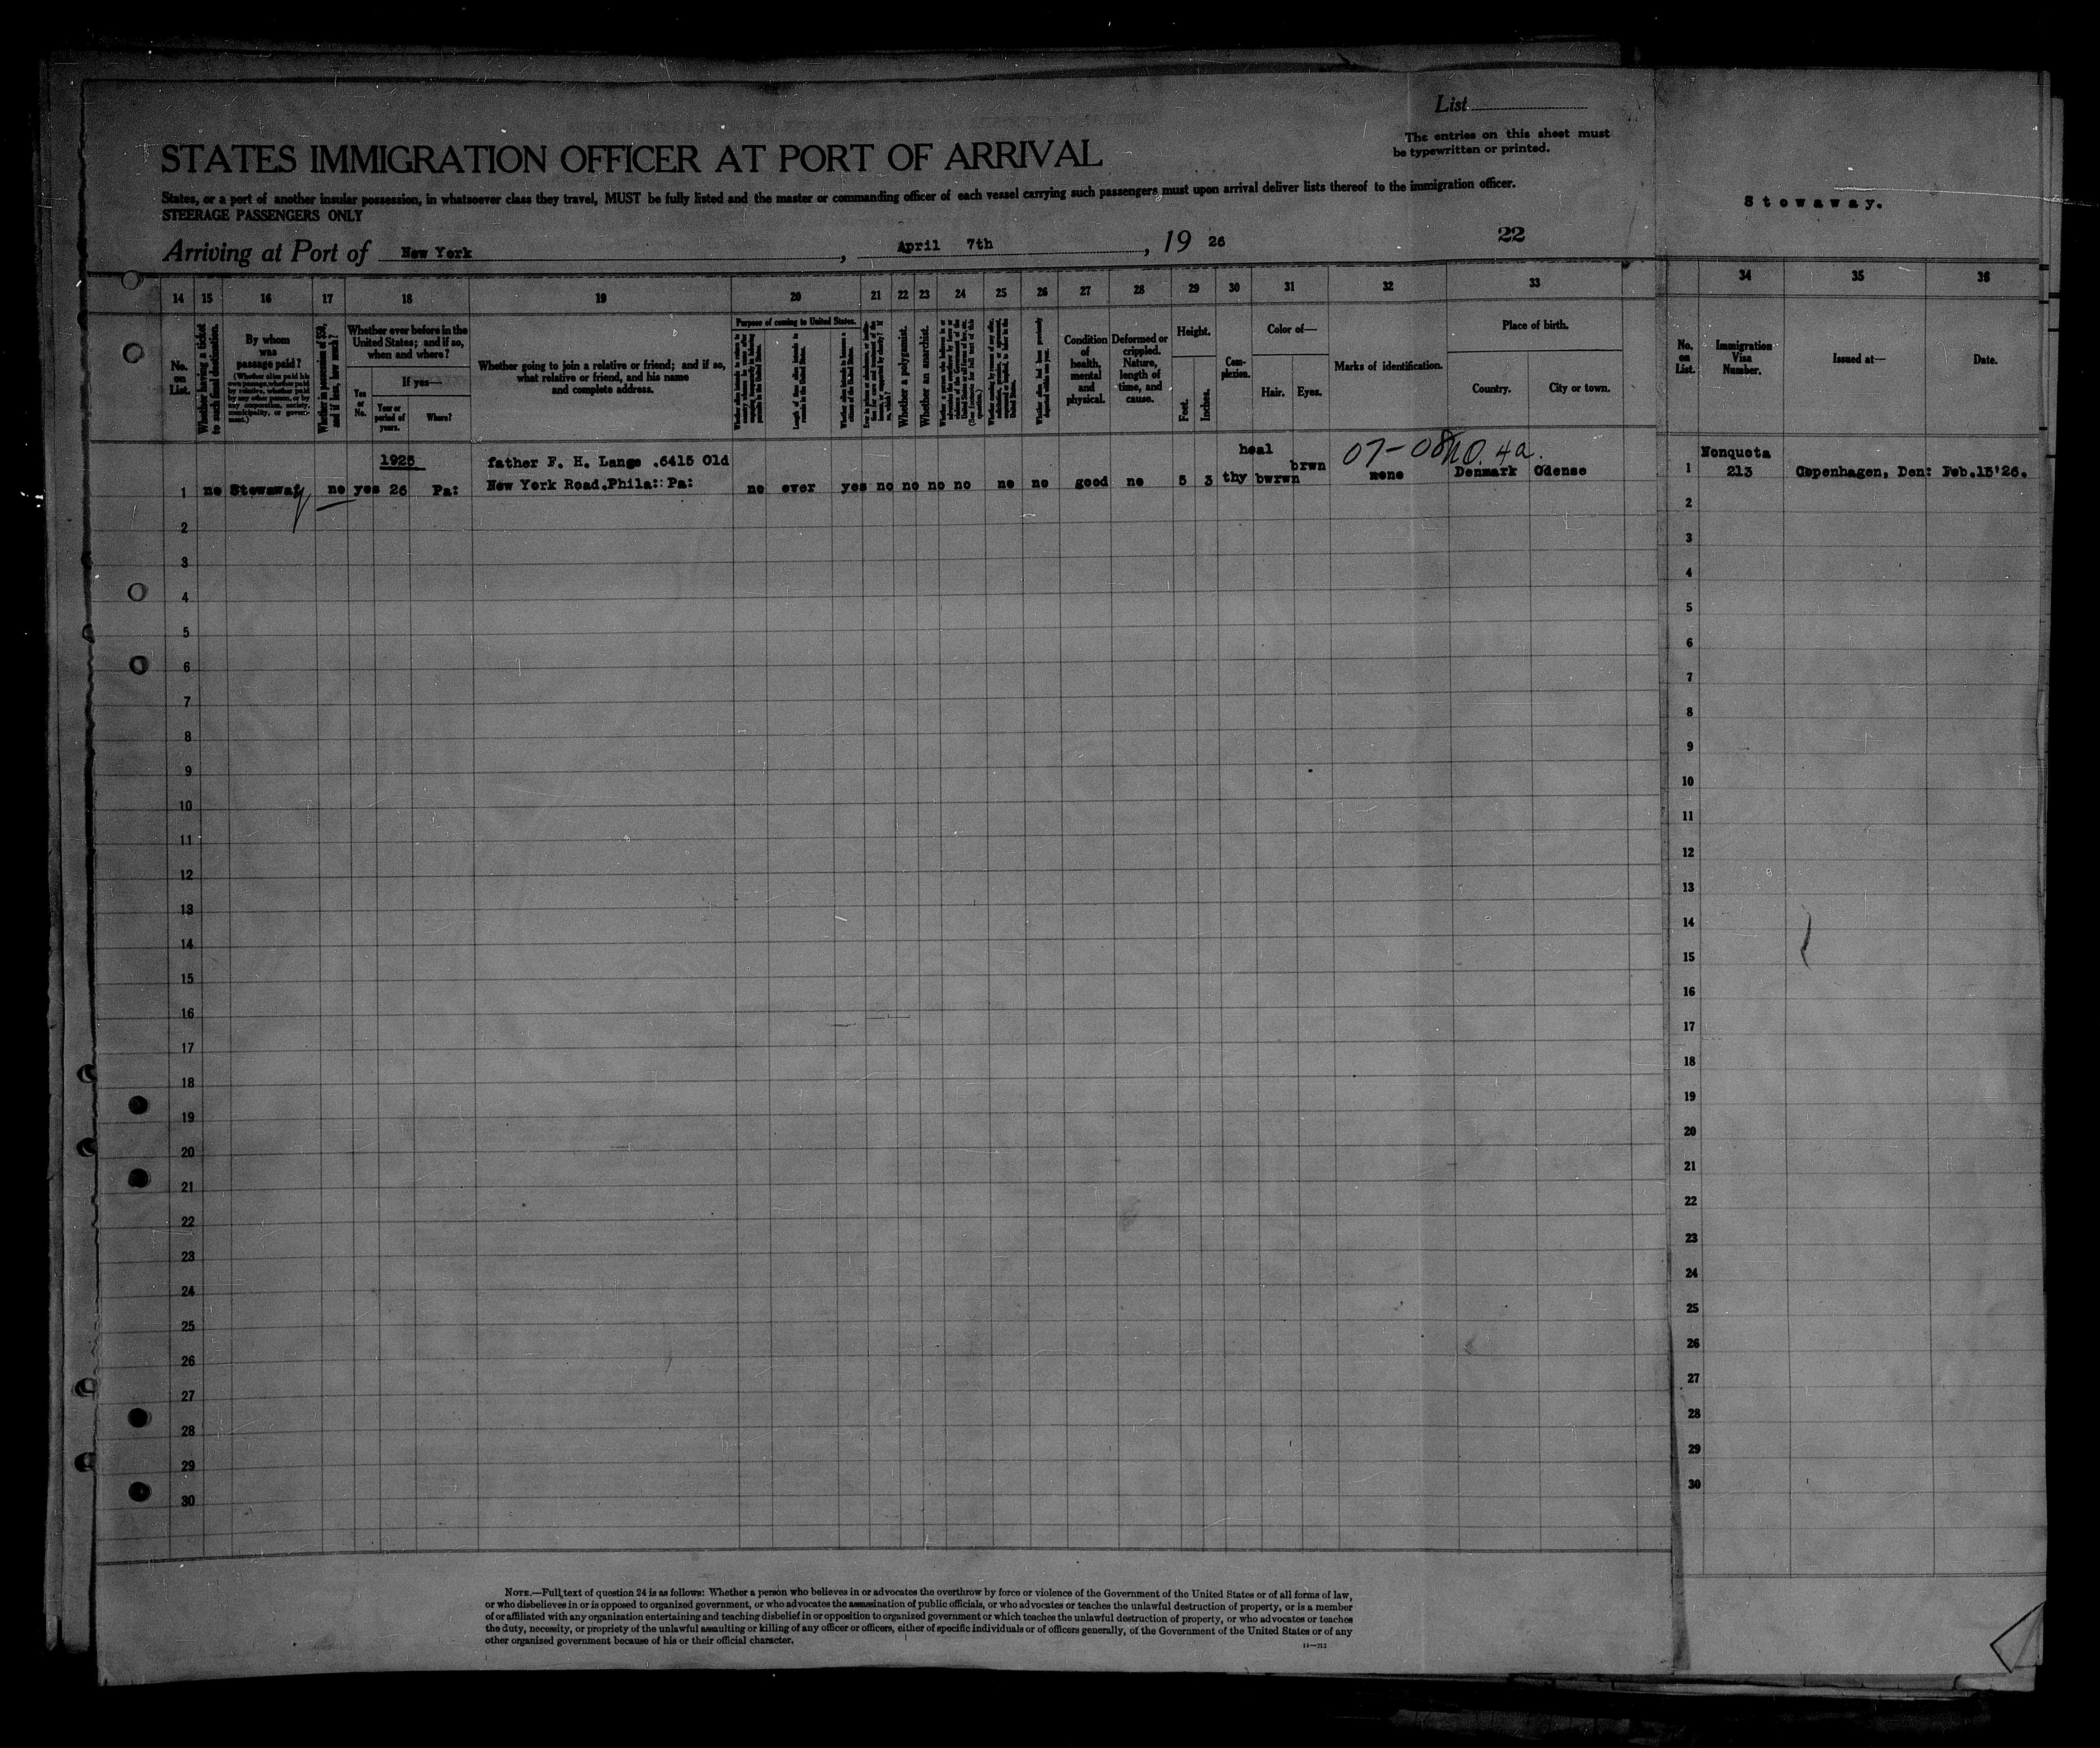 List
The entries on this sheet must
be typewritten or printed.
STATES IMMIGRATION OFFICER AT PORT OF ARRIVAL
States, or a port of another insular possession, in whatsoever class they travel, MUST be fully listed and the master or commanding officer of each vessel carrying such passengers must upon arrival deliver lists thereof to the immigration officer.
STEERAGE PASSENGERS ONLY
Stowaway.
Arriving at Port of New York, April 7th, 19 26
22
14 15 16 17 18 19 20 21 22 23 24 25 26 27 28 29 30 31 32 33 34 35 36
No. on List.
Whether having a ticket to such final destination.
By whom was passage paid?
(Whether alien paid his own passage, whether paid by relative, whether paid by any other person, or by any corporation, society, municipality, or government.)
Whether in possession of $50, and if less, how much?
Whether ever before in the United States; and if so, when and where?
Yes or No.
If yes—
Year or period of years.
Where?
Whether going to join a relative or friend; and if so, what relative or friend, and his name and complete address.
Purpose of coming to United States.
Length of time alien intends to remain in the United States.
Whether alien intends to become a citizen of the United States.
Whether a polygamist.
Whether an anarchist.
Condition of health, mental and physical.
Deformed or crippled. Nature, length of time, and cause.
Height.
Feet.
Inches.
Com-plexion.
Color of—
Hair.
Eyes.
Marks of identification.
Place of birth.
Country.
City or town.
No. on List.
Immigration Visa Number.
Issued at—
Date.
1925 father F. H. Lange .6415 Old heal brwn 07-08 NO. 4a. Nonquota
1 no Stowaway no yes 26 Pa: New York Road.Phila:: Pa: no ever yes no no no no no no good no 5 3 thy bwrwn none Denmark Odense 1 213 Copenhagen, Den: Feb.13'26.
2 2
3 3
4 4
5 5
6 6
7 7
8 8
9 9
10 10
11 11
12 12
13 13
14 14
15 15
16 16
17 17
18 18
19 19
20 20
21 21
22 22
23 23
24 24
25 25
26 26
27 27
28 28
29 29
30 30
NOTE.—Full text of question 24 is as follows: Whether a person who believes in or advocates the overthrow by force or violence of the Government of the United States or of all forms of law,
or who disbelieves in or is opposed to organized government, or who advocates the assassination of public officials, or who advocates or teaches the unlawful destruction of property, or is a member
of or affiliated with any organization entertaining and teaching disbelief in or opposition to organized government or which teaches the unlawful destruction of property, or who advocates or teaches
the duty, necessity, or propriety of the unlawful assaulting or killing of any officer or officers, either of specific individuals or of officers generally, of the Government of the United States or of any
other organized government because of his or their official character.
14—213